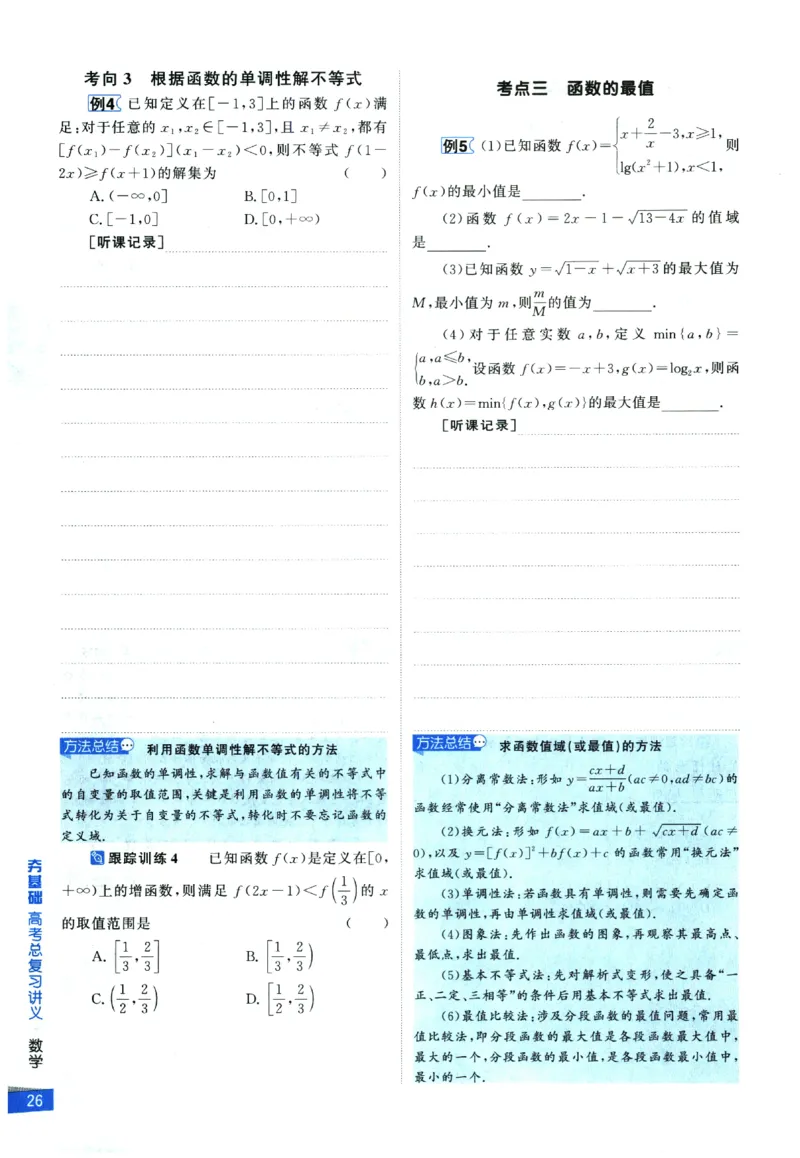 考向 3 根据函数的单调性解不等式
例4 已知定义在[-1,3]上的函数 f(x)满
足:对于任意的 x₁,x₂∈[-1,3],且 x₁≠x₂,都有
[f(x₁)-f(x₂)](x₁-x₂)<0,则不等式 f(1-
2x)≥f(x+1)的解集为 ( )
A.(-∞,0] B.[0,1]
C.[-1,0] D.[0,+∞)
[听课记录]
方法总结 利用函数单调性解不等式的方法
已知函数的单调性,求解与函数值有关的不等式中
的自变量的取值范围,关键是利用函数的单调性将不等
式转化为关于自变量的不等式,转化时不要忘记函数的
定义域.
跟踪训练 4 已知函数 f(x)是定义在[0,
+∞)上的增函数,则满足 f(2x-1)<f(1/3)的 x
的取值范围是 ( )
A.[1/3,2/3] B.[1/3,2/3)
C.(1/2,2/3) D.[1/2,2/3)
考点三 函数的最值
例5 (1)已知函数 f(x)={x+2/x-3,x≥1, lg(x²+1),x<1, 则
f(x)的最小值是______.
(2)函数 f(x)=2x-1-√(13-4x) 的值域
是______.
(3)已知函数 y=√(1-x)+√(x+3)的最大值为
M,最小值为 m,则m/M的值为______.
(4)对于任意实数 a,b,定义 min{a,b}=
{a,a≤b, b,a>b. 设函数 f(x)=-x+3,g(x)=log₂x,则函
数 h(x)=min{f(x),g(x)}的最大值是______.
[听课记录]
方法总结 求函数值域(或最值)的方法
(1)分离常数法:形如 y=(cx+d)/(ax+b)(ac≠0,ad≠bc)的
函数经常使用“分离常数法”求值域(或最值).
(2)换元法:形如 f(x)=ax+b+√(cx+d)(ac≠
0),以及 y=[f(x)]²+bf(x)+c 的函数常用“换元法”
求值域(或最值).
(3)单调性法:若函数具有单调性,则需要先确定函
数的单调性,再由单调性求值域(或最值).
(4)图象法:先作出函数的图象,再观察其最高点、
最低点,求出最值.
(5)基本不等式法:先对解析式变形,使之具备“一
正、二定、三相等”的条件后用基本不等式求出最值.
(6)最值比较法:涉及分段函数的最值问题,常用最
值比较法,即分段函数的最大值是各段函数最大值中,
最大的一个,分段函数的最小值,是各段函数最小值中,
最小的一个.
夯基础 高考总复习讲义 数学
26